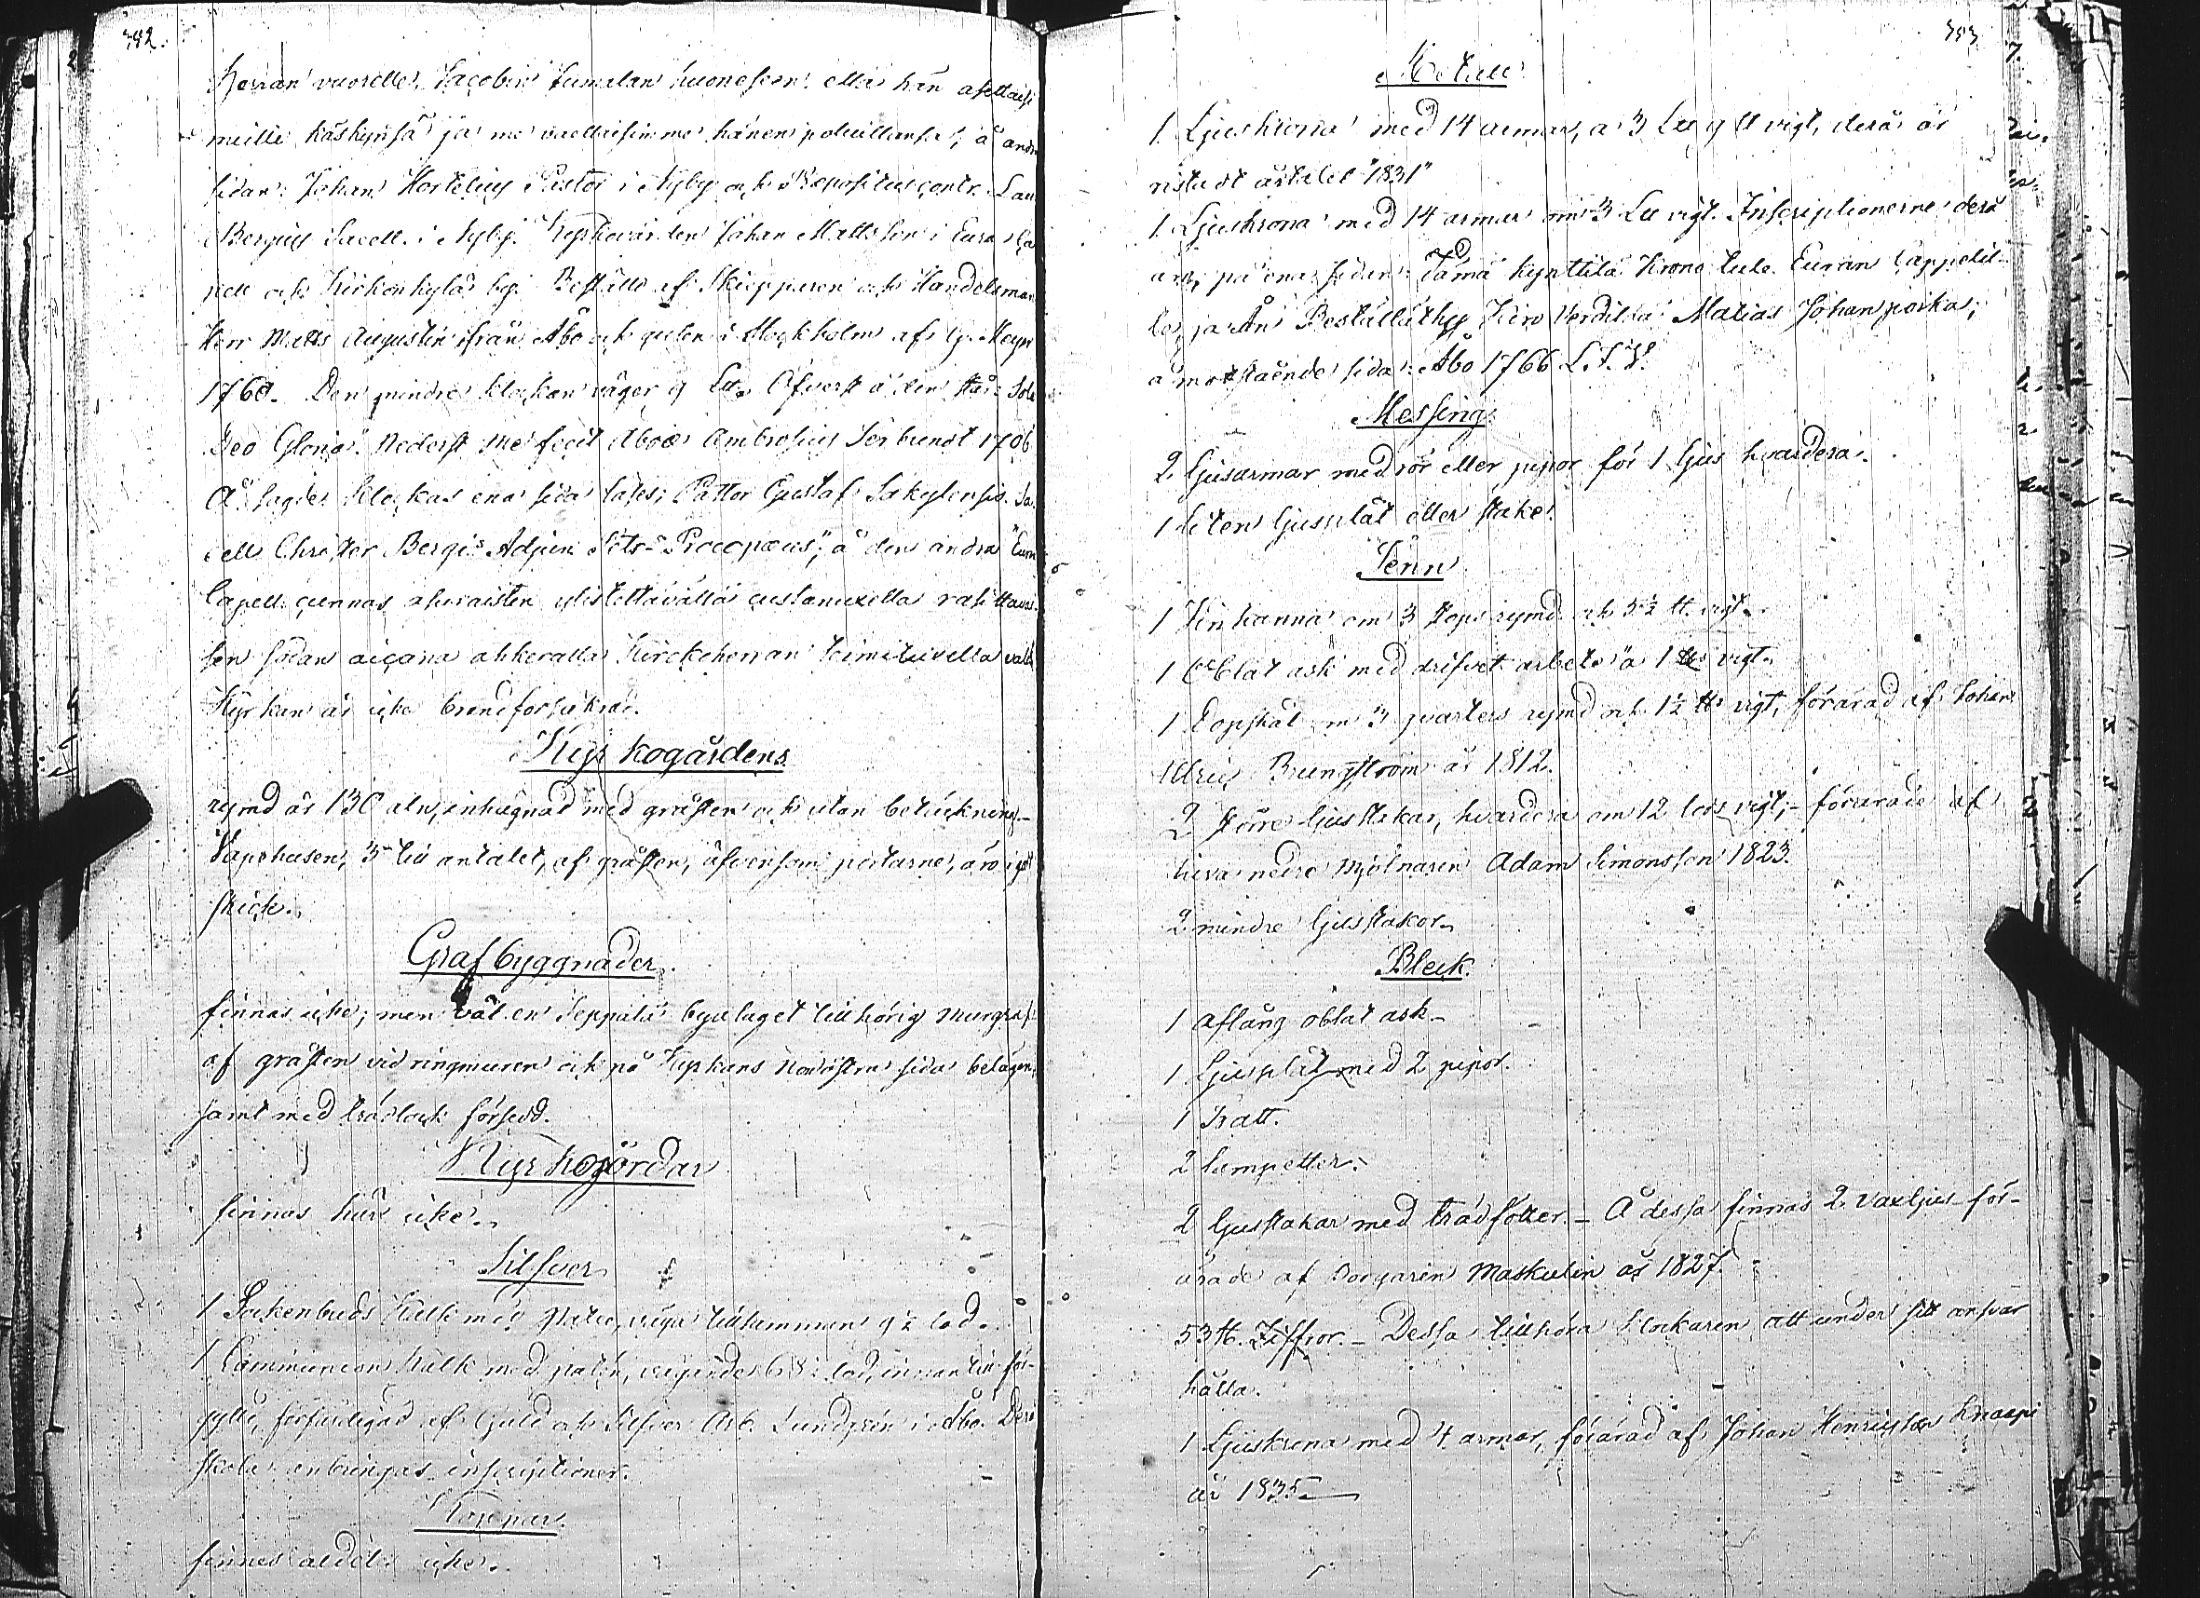 382.
Herran vuorelle, Jacobin Jumalan huoneseen. että hän opettaisi
meille käskynsä ja me vaeltaisimme hänen poluillansa", å andra
sidan: Johan Hortelius Pastor i Nyby och Præpositus contr. Lau
Bergius Sacell. i Nyby. Kyrkiovärden Johan Mattsson i Eura Ca
pell och Kirkonkylä by. Bestäld af Skiepparen och Handelsman
Herr Matts Augustin ifrån Åbo och guten i Stockholm af G. Meyer
1760. Den mindre klockan väger 9 L℔. Öfverst å den står: Soli
Deo Gloria. Nederst me fecit Aboæ Ambrosius Terbundt 1706
Å sagde klockas ena sida läses: Pastor Gustaf Sækylensis. Sa
cell Christer Bergis Adjun. Petr. Procopæus", å den andra "Euran
Capell. cunnas
sen sodan aicana ahkeralla Kirckoherran toimituxella
Kyrkan är icke brandförsäkrad.
Kyrkogårdens
rymd är 130 aln, inhägnad med gråsten och utan betäckning.
Vapenhusen, 3 till antalet, af gråsten, äfvensom portarne, äro i godt
skick.
Grafbyggnader
finnas icke; men väl en Seppälä byalaget tillhörig murgraf
af gråsten vid ringmuren och på Kyrkans nordöstra sida belägen,
samt med trälock försedd.
Kyrkojordar
finnas här icke.
Silfver
1 Sockenbuds Kalk med Paten, väga tillsammans 9½ lod.
1 Communion Kalk med patén, vägande 68½ lod, innantill för-
gylld, förfärdigad af Guld och Silfver Arb. Lundgrén i Åbo. Derå
skola anbringas inscriptioner.
Koppar
finnes aldeles icke.
383
Metall
1 Ljuskrona med 14 armar, a 3 L℔ 9 ℔ vigt, derå är
ristadt årtalet "1831"
1 Ljuskrona med 14 armar om 3 L℔ vigt. Inscriptionerne derå
äro, på ena sidan: Tämä kynttilä Krono tule Euran Cappelil-
le, ja on Beställäthy Kirco Verdilda Matias Johan poika;
å motstående sida: Åbo 1766 L.S.W.
Messing
2 Ljusarmar med rör eller pipor för 1 ljus hvardera.
1 liten ljusplåt eller stake.
Tenn
1 Vinkanna om 3 stops rymd och 5½ ℔ vigt.
1 Oblat ask med drifvet arbete a 1 ℔ vigt.
1 Dopskål om 3 qvarters rymd och 1½ ℔ vigt, förärad af Johan
Ulric Brungström år 1812.
2 större ljusstakar, hvardera om 12 lods vigt, – förärade af
Kiva nedre mjölnaren Adam Simonsson 1823.
2 mindre ljusstakor.
Bleck.
1 aflång oblat ask –
1 Ljusplåt med 2 pipor.
1 Tratt.
2 lampetter.
2 ljusstakar med trädfötter. – Å dessa finnas 2 vaxljus för-
ärade af Borgaren Maskulin år 1827.
53 st. Ziffror. – Dessa tillhöra klockaren att under sitt ansvar
hålla.
1 Ljuskrona med 4 armar, förärad af Johan Henriksson Knaapi
år 1835